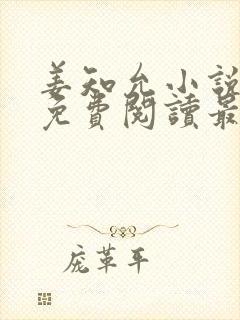 姜知允小說
免費閱讀最
庞革平